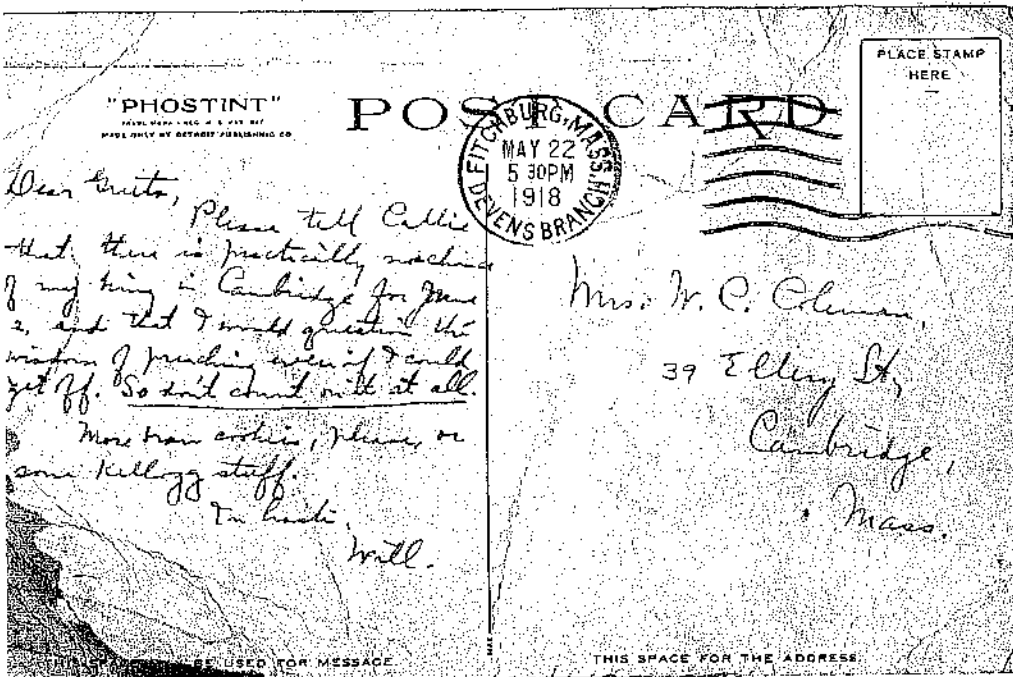 "PHOSTINT"
MADE ONLY BY DETROIT PUBLISHING CO.
POST CARD
PLACE STAMP
HERE
FITCHBURG, MASS.
MAY 22
5 30PM
1918
DEVENS BRANCH
Dear Greta,
Please tell Callie
that there is practically no chance
of my being in Cambridge for June
2, and that I would question the
wisdom of preaching even if I could
get off. So don't count on it at all.
More bran cookies, please, or
some Kellogg stuff.
In haste,
Will.
Mrs. W. C. Coleman,
39 Ellery St,
Cambridge,
Mass.
THIS SPACE BE USED FOR MESSAGE
THIS SPACE FOR THE ADDRESS